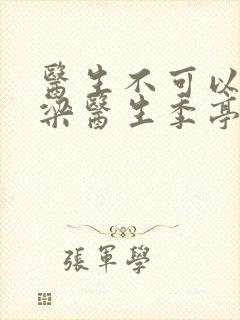 醫生不可以
梁醫生季亭
張軍學